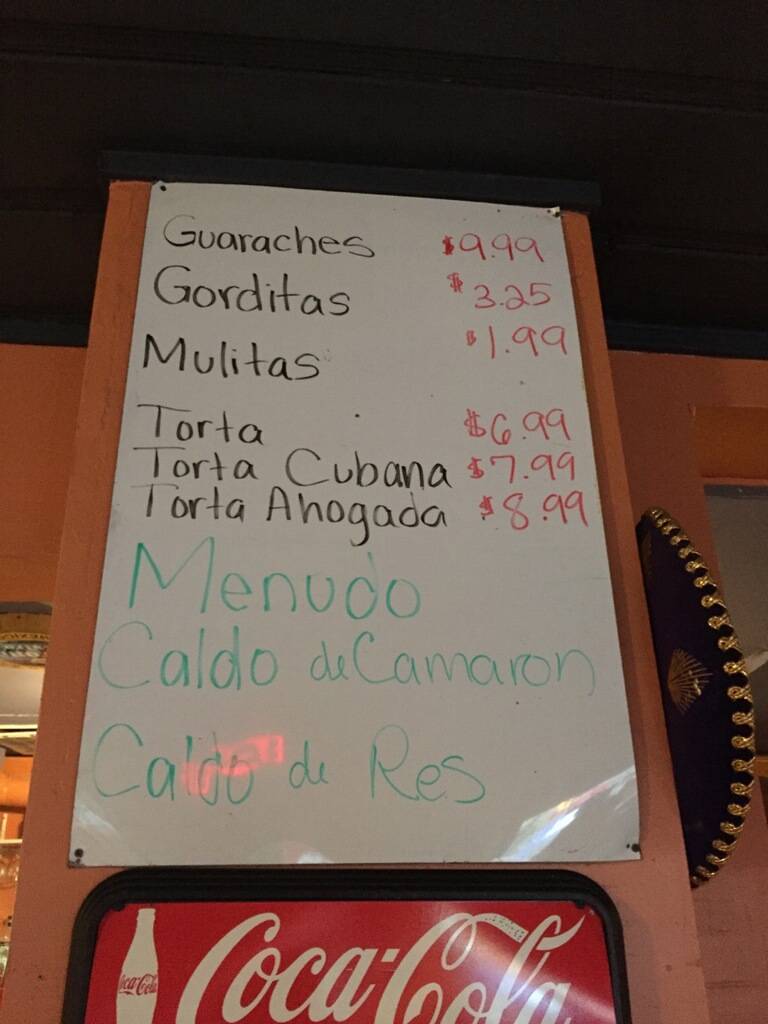 Guaraches $9.99
Gorditas $3.25
Mulitas $1.99
Torta $6.99
Torta Cubana $7.99
Torta Ahogada $8.99
Menudo
Caldo de Camaron
Caldo de Res
Coca-Cola
Coca-Cola